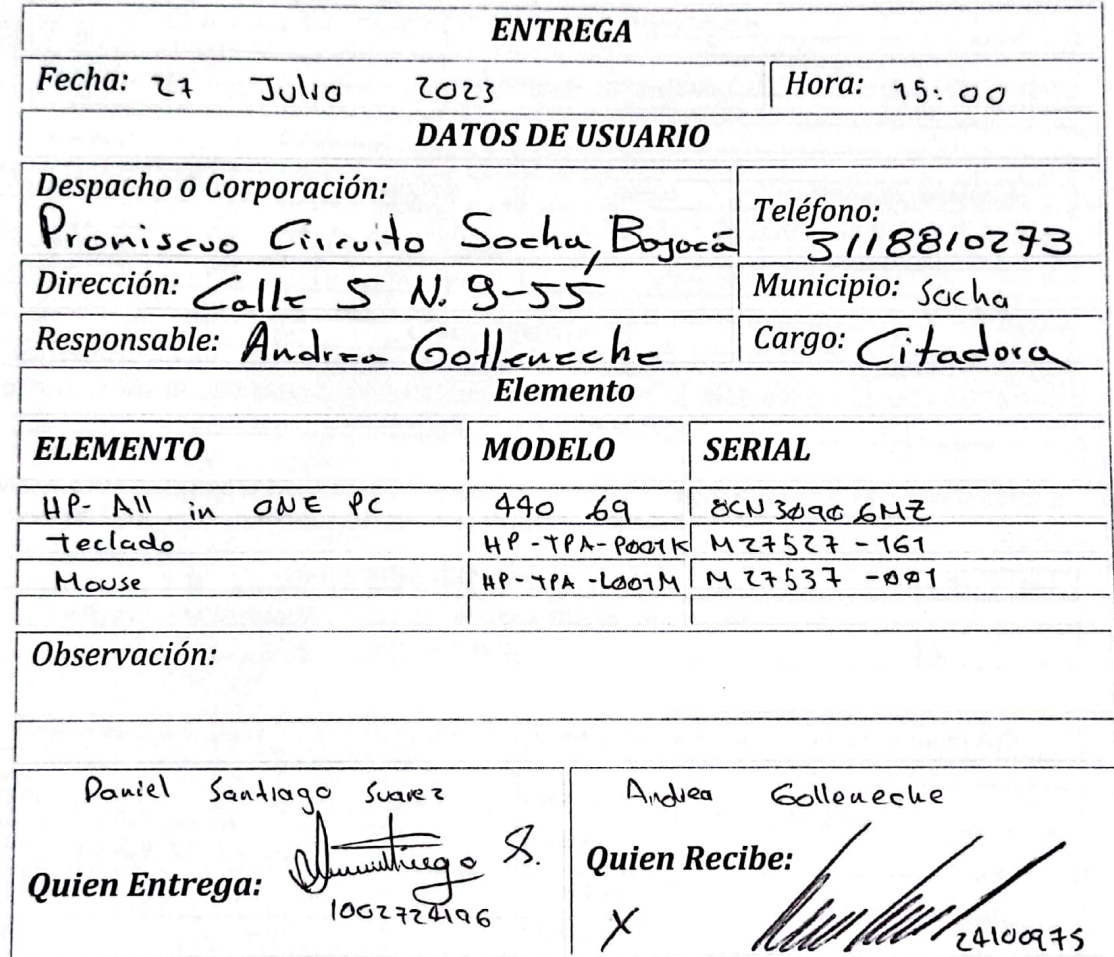 ENTREGA
Fecha: 27 Julio 2023 Hora: 15:00
DATOS DE USUARIO
Despacho o Corporación:
Promiscuo Circuito Socha, Boyacá
Teléfono:
3118810273
Dirección: Calle 5 N. 9-55 Municipio: Socha
Responsable: Andrea Golleneche Cargo: Citadora
Elemento
ELEMENTO MODELO SERIAL
HP- All in ONE PC 440 .69 8CN30906MZ
Teclado HP-TPA-P001K M27527-161
Mouse HP-TPA-L001M M27537-001
Observación:
Daniel Santiago Suarez
Quien Entrega: S.
1002724196
Andrea Golleneche
Quien Recibe:
X 24100975